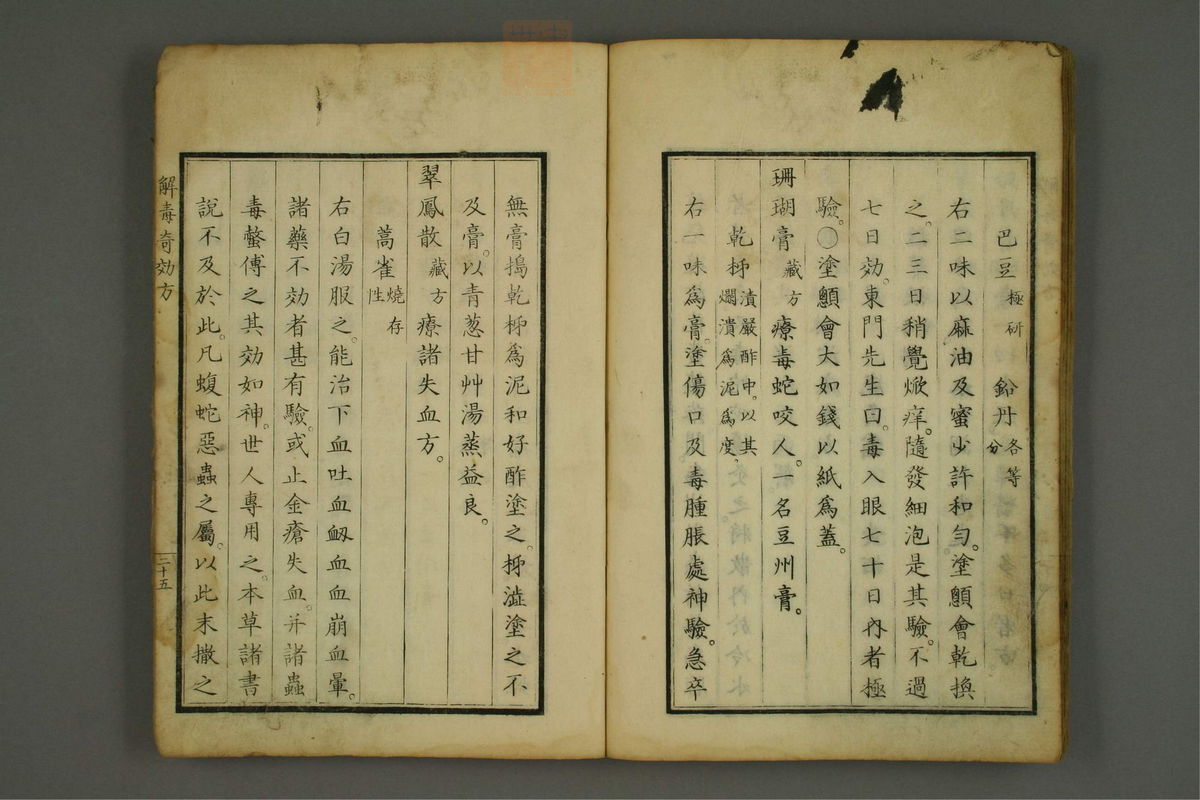 巴豆 極研 鉛丹 各等分
右二味以麻油及蜜少許和勻。塗顖會乾換
之。二三日稍覺焮痒。隨發細泡是其驗。不過
七日効。東門先生曰。毒入眼七十日內者極
驗。○塗顖會大如錢以紙爲蓋。
珊瑚膏 藏方 療毒蛇咬人。一名豆州膏。
乾柹 漬嚴酢中。以其爛潰爲泥爲度。
右一味爲膏。塗傷口及毒腫脹處神驗。急卒
無膏搗乾柹爲泥和好酢塗之。柹澁塗之不
及膏。以青葱甘艸湯蒸益良。
翠鳳散 藏方 療諸失血方。
蒿雀 燒存性
右白湯服之。能治下血吐血衂血血崩血暈。
諸藥不効者甚有驗。或止金瘡失血。并諸蟲
毒螫傅之其効如神。世人專用之。本草諸書
說不及於此。凡蝮蛇惡蟲之屬。以此末撒之
解毒奇効方
二十五